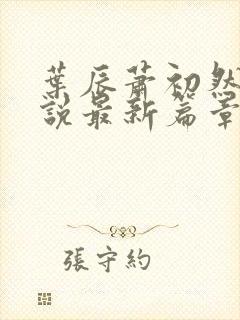 葉辰蕭初然
說最新篇章
張守約